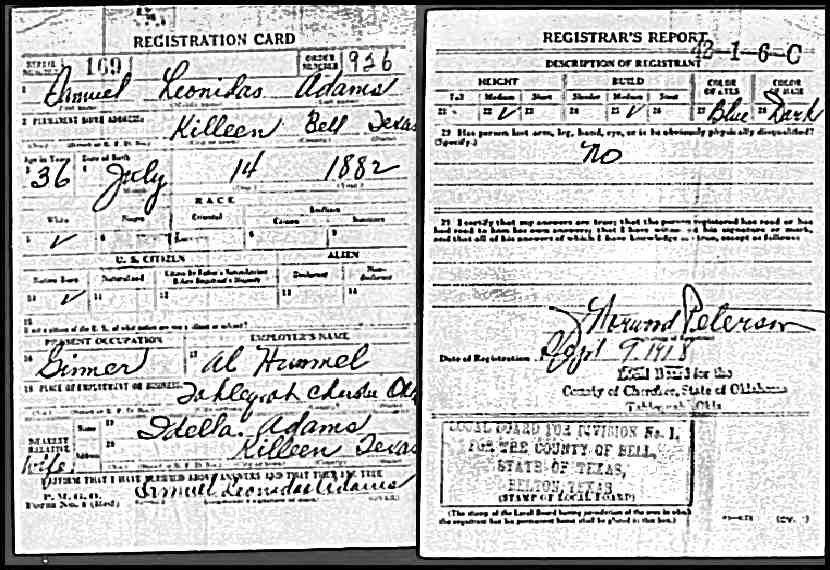 REGISTRATION CARD
SERIAL NUMBER 169 ORDER NUMBER 926
1 Leonidas Adams
2 PERMANENT HOME ADDRESS:
Killeen Bell Texas
Age in Years Date of Birth
3 36 4 July 14 1882
RACE
White Negro Oriental Indian
Citizen Noncitizen
5 ✓ 6 7 8 9
U. S. CITIZEN ALIEN
Native Born Naturalized Citizen by Father's Naturalization Before Registrant's Majority Declarant Non-declarant
10 ✓ 11 12 13 14
15
PRESENT OCCUPATION EMPLOYER'S NAME
16 Ginner 17 Al Hummel
18 PLACE OF EMPLOYMENT OR BUSINESS:
Name 19 Idella Adams
NEAREST RELATIVE
Wife Address 20 Killeen Texas
I AFFIRM THAT I HAVE VERIFIED ABOVE ANSWERS AND THAT THEY ARE TRUE
P. M. G. O.
Form No. 1 (Red)
Leonidas Adams
REGISTRAR'S REPORT
42-1-6-C
DESCRIPTION OF REGISTRANT
HEIGHT BUILD COLOR OF EYES COLOR OF HAIR
Tall Medium Short Slender Medium Stout
21 22 ✓ 23 24 25 ✓ 26 27 Blue 28 Dark
29 Has person lost arm, leg, hand, eye, or is he obviously physically disqualified?
(Specify.)
No
30 I certify that my answers are true; that the person registered has read or has
had read to him his own answers; that I have witnessed his signature or mark,
and that all of his answers of which I have knowledge are true, except as follows:
J. Norwood Peterson
Date of Registration Sept 9 1918
Local Board for the
County of Cherokee, State of Oklahoma
Tahlequah, Okla
LOCAL BOARD FOR DIVISION No. 1,
FOR THE COUNTY OF BELL,
STATE OF TEXAS,
BELTON, TEXAS
(STAMP OF LOCAL BOARD)
(The stamp of the Local Board having jurisdiction of the area in which
the registrant has his permanent home shall be placed in this box.)